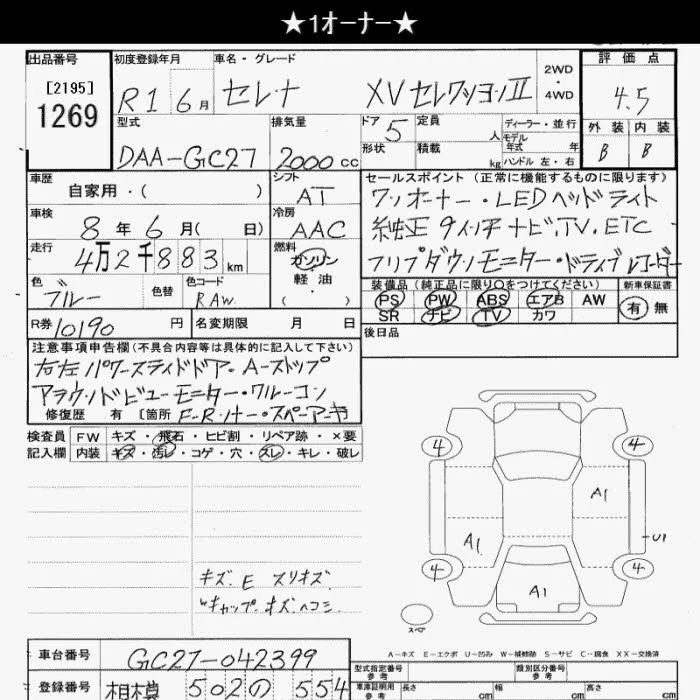 ★1オーナー★
出品番号
[2195]
1269
初度登録年月
R1 6月
車名・グレード
セレナ XVセレクションⅡ
2WD
4WD
評価点
4.5
外装 内装
B B
型式
DAA-GC27
排気量
2000cc
ドア 5
形状
定員 人
積載 kg
ディーラー・並行
モデル
年式 年
ハンドル 左・右
車歴
自家用・( )
シフト
AT
車検
8年6月( 日)
冷房
AAC
走行
4万2千883km
燃料
ガソリン
軽油
( ・ )
色
ブルー
色替
色コード
RAW
R券 10190 円
名変期限 月 日
セールスポイント (正常に機能するものに限ります)
ワンオーナー・LEDヘッドライト
純正9インチナビ.TV.ETC
フリップダウンモニター・ドライブレコーダー
装備品(純正品に限り○をつけてください)
PS PW ABS エアB AW
SR ナビ TV カワ
新車保証書
有 無
後日品
注意事項申告欄(不具合内容等は具体的に記入して下さい)
右左パワースライドドア・A-ストップ
アラウンドビューモニター・クルーコン
修復歴 有 [箇所 F-Rソナー・スペアーキ
検査員
記入欄
FW キズ・飛石・ヒビ割・リペア跡・×要
内装 キズ・汚レ・コゲ・穴・スレ・キレ・破レ
キズ.E スリキズ
Wキャップ.キズヘコミ
4
4
4
4
A1
A1
A1
U1
スペア
A-キズ E-エクボ U-凹み W-補修跡 S-サビ C-腐食 XX-交換済
車台番号
GC27-042399
登録番号
相模 502の 554
型式指定番号
参考
類別区分番号
参考
車庫証明用
参考
長さ cm
幅 cm
高さ cm